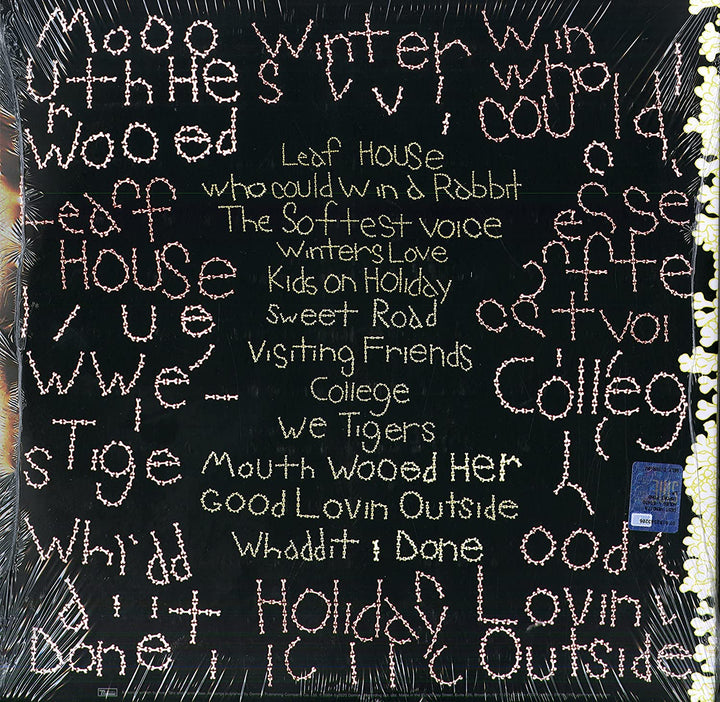 Mooo
uthHe
r
wooed
Winter
s
Win
who
could
Leaf House
who could win a Rabbit
The Softest voice
Winters Love
Kids on Holiday
Sweet Road
Visiting Friends
College
We Tigers
Mouth Wooed Her
Good Lovin Outside
Whaddit i Done
Leaff
House
WWe'-
Tige
s
College
Whrdd
diit
Done
Holiday
Lovin
Outside
ood